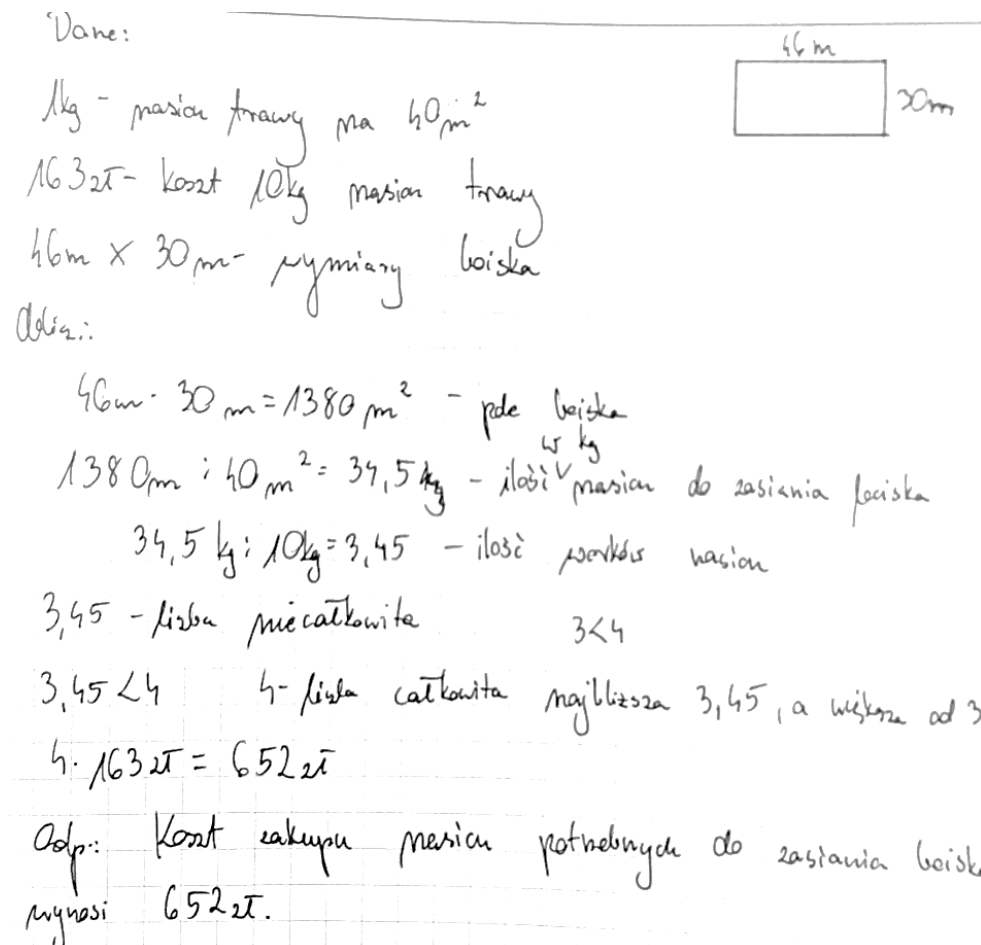 Dane:
46 m
30m
1kg - nasion trawy na 40 m²
163 zł - koszt 10kg nasion trawy
46m × 30 m - wymiary boiska
Oblicz.:
46m · 30 m = 1380 m² - pole boiska
w kg
1380m : 40 m² = 34,5 kg - ilość ∨ nasion do zasiania boiska
34,5 kg : 10kg = 3,45 - ilość worków nasion
3,45 - liczba niecałkowita 3<4
3,45 < 4 4 - liczba całkowita najbliższa 3,45, a większa od 3
4 · 163 zł = 652 zł
Odp.: Koszt zakupu nasion potrzebnych do zasiania boiska
wynosi 652 zł.